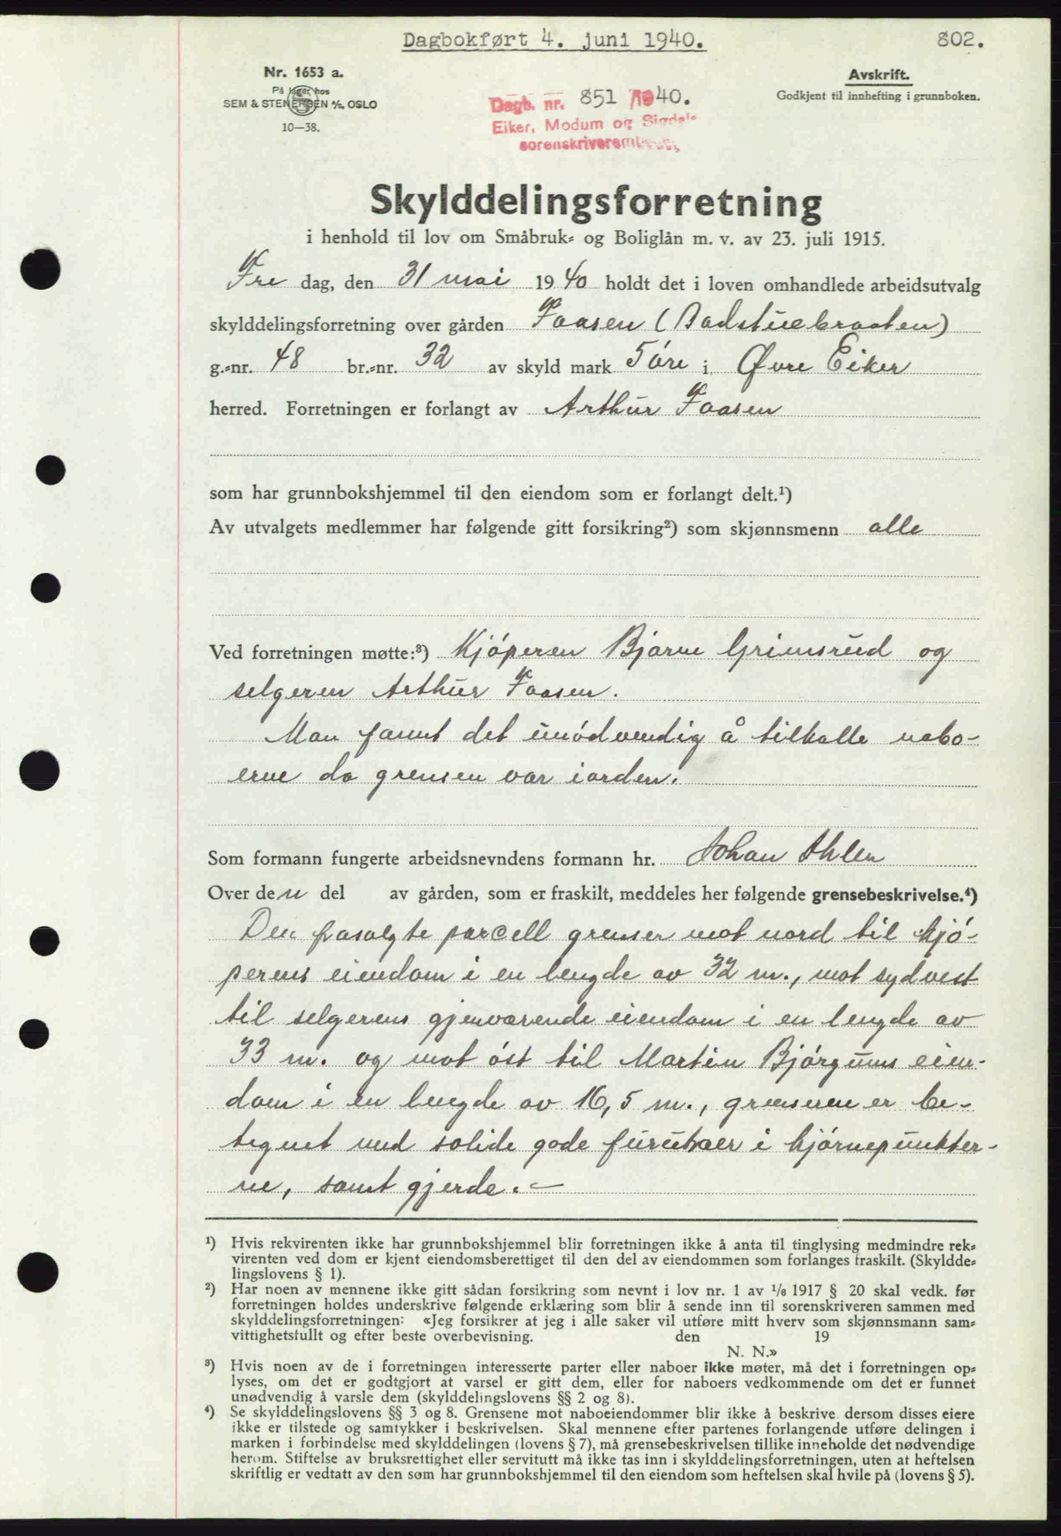 Dagbokført 4. juni 1940.
802.
Nr. 1653 a.
På lager hos
SEM & STENERSEN A/S, OSLO
10—38.
Dagb. nr. 851 /1940.
Eiker, Modum og Sigdals
sorenskriverembete,
Avskrift.
Godkjent til innhefting i grunnboken.
Skylddelingsforretning
i henhold til lov om Småbruk- og Boliglån m. v. av 23. juli 1915.
Fre dag, den 31 mai 1940 holdt det i loven omhandlede arbeidsutvalg
skylddelingsforretning over gården Faasen (Badstuebraaten)
g.-nr. 48 br.-nr. 32 av skyld mark 5 øre i Øvre Eiker
herred. Forretningen er forlangt av Arthur Faasen
som har grunnbokshjemmel til den eiendom som er forlangt delt.¹)
Av utvalgets medlemmer har følgende gitt forsikring²) som skjønnsmenn alle
Ved forretningen møtte:³) Kjøperen Bjarne Grimsrud og
selgeren Arthur Faasen.
Man fannt det unødvendig å tilkalle nabo-
erne da grensen var iorden.
Som formann fungerte arbeidsnevndens formann hr. Johan Ihlen
Over den del av gården, som er fraskilt, meddeles her følgende grensebeskrivelse.⁴)
Den frasolgte parcell grenser mot nord til kjø-
perens eiendom i en lengde av 32 m., mot sydvest
til selgerens gjenværende eiendom i en lengde av
33 m. og mot øst til Martin Bjørgums eien-
dom i en lengde av 16,5 m., grensene er be-
tegnet med solide gode furutrær i hjørnepunkter-
ne, samt gjerde. —
¹) Hvis rekvirenten ikke har grunnbokshjemmel blir forretningen ikke å anta til tinglysing medmindre rek-
virenten ved dom er kjent eiendomsberettiget til den del av eiendommen som forlanges fraskilt. (Skyldde-
lingslovens § 1).
²) Har noen av mennene ikke gitt sådan forsikring som nevnt i lov nr. 1 av 1/8 1917 § 20 skal vedk. før
forretningen holdes underskrive følgende erklæring som blir å sende inn til sorenskriveren sammen med
skylddelingsforretningen: «Jeg forsikrer at jeg i alle saker vil utføre mitt hverv som skjønnsmann sam-
vittighetsfullt og efter beste overbevisning. den 19
N. N.»
³) Hvis noen av de i forretningen interesserte parter eller naboer ikke møter, må det i forretningen op-
lyses, om det er godtgjort at varsel er gitt dem, eller for naboers vedkommende om det er funnet
unødvendig å varsle dem (skylddelingslovens §§ 2 og 8).
⁴) Se skylddelingslovens §§ 3 og 8. Grensene mot naboeiendommer blir ikke å beskrive dersom disses eiere
ikke er tilstede og samtykker i beskrivelsen. Skal mennene efter partenes forlangende utføre delingen i
marken i forbindelse med skylddelingen (lovens § 7), må grensebeskrivelsen tillike inneholde det nødvendige
herom. Stiftelse av bruksrettighet eller servitutt må ikke tas inn i skylddelingsforretningen, uten at heftelsen
skriftlig er vedtatt av den som har grunnbokshjemmel til den eiendom som heftelsen skal hvile på (lovens § 5).